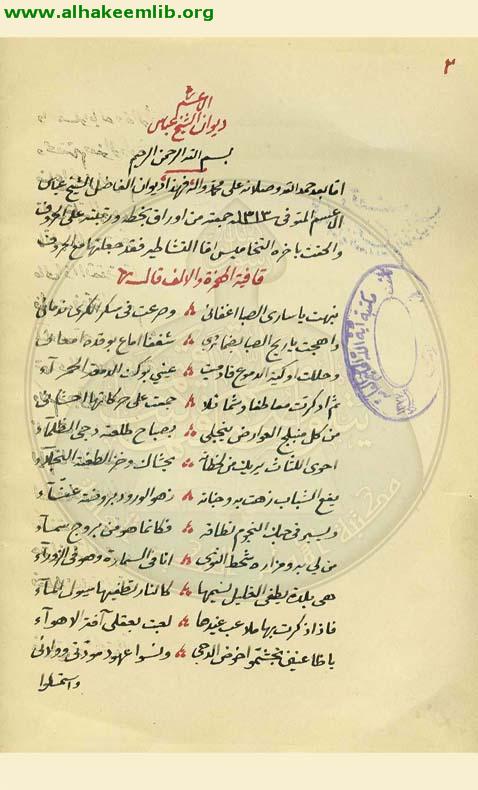 www.alhakeemlib.org
٢
الاعسم
ديوان الشيخ عباس
بسم الله الرحمن الرحيم
اما بعد حمد الله وصلاته على محمد وآله فهذا ديوان الفاضل الشيخ عباس
الاعسم المتوفى ١٣١٣ جمعته من اوراق بخطه ورتبته على الحروف
والحقت باخره التخاميس اما التشاطير فقد جعلتها مع الحروف
قافية الهمزة والالف قال
نبهت يا ساري الصبا اغفائي وصرعت في سكر الكرى ندمائي
واهجت يا ريح الصبا بضمائري شغفا اماع بوقده امعائي
وحللت اوكية الدموع فادميت عيني بوكف الدمعة الحمراء
ثم ادكرت معاطفا وشمائلا جمعت على حركاتها احشائي
من كل منبلج العوارض ينجلي بصباح طلعته دجى الظلماء
احوى اللثاث يريك من لحظاته وخز الطعنة النجلاء
يفع الشباب زهت به وجناته زهو الورود بروضة غناء
ويسير في حبك النجوم نطاقه فكانما هو من بروج سماء
من لي به ومزاره شحط النوى انا في السماوة وهو في الزوراء
هي بلدة يطفي الغليل نسيمها كالنار تطفيها سيول الماء
فاذا ذكرت بها ملاعب غيدها لعبت بعقلي آفة الاهواء
يا ظاعنين تجشموا خوض الدجى ونسوا عهود مودتي وولائي